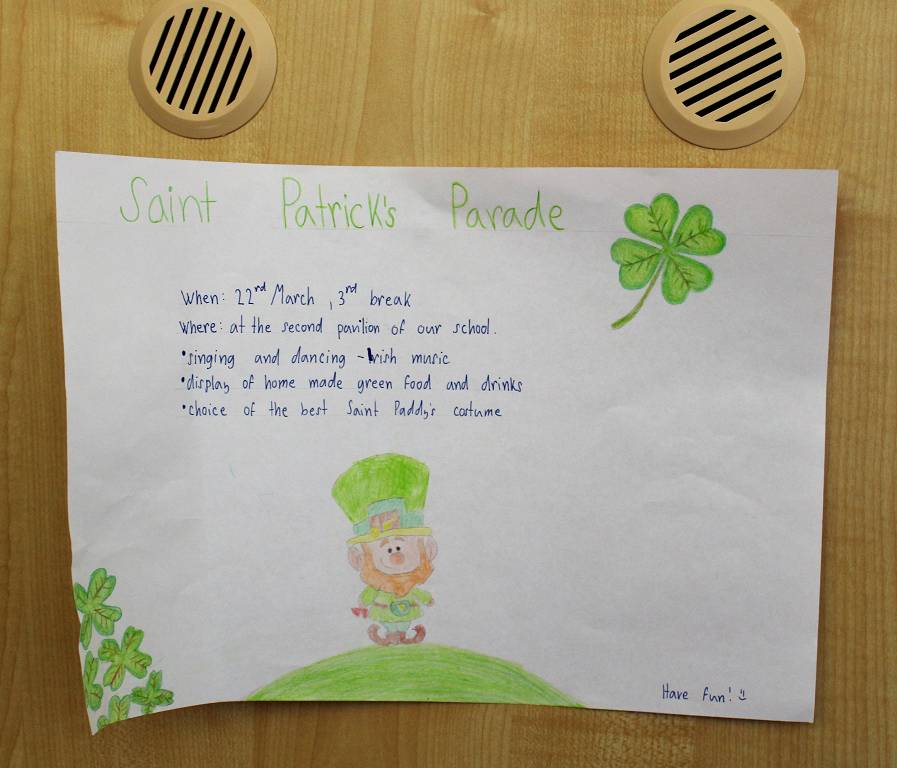 Saint Patrick's Parade
When: 22nd March, 3rd break
Where: at the second pavilion of our school.
•singing and dancing - Irish music
•display of home made green food and drinks
•choice of the best Saint Paddy's costume
Have fun! :)